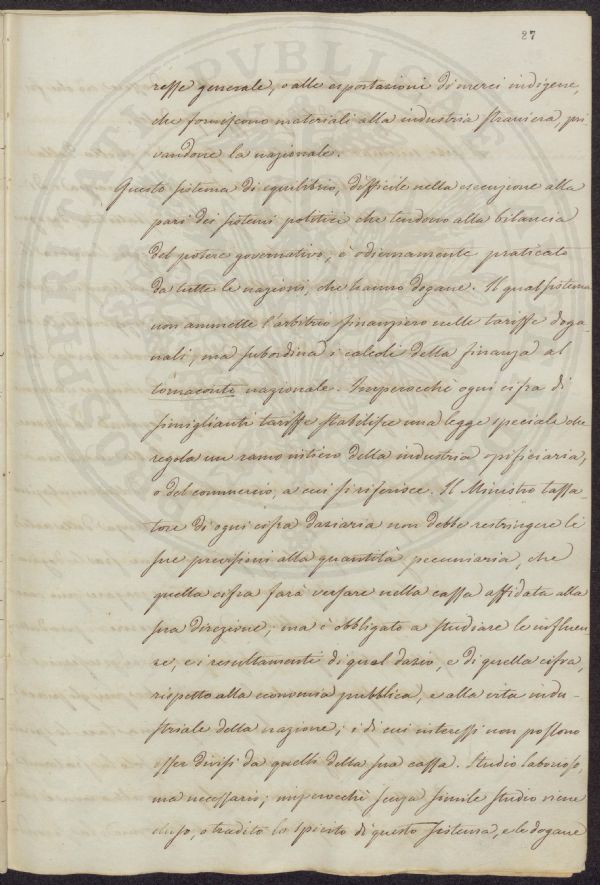 27
resse generale, o alle esportazioni di merci indigene,
che forniscono materiali alla industria straniera, pri
vandone la nazionale.
Questo sistema di equilibrio, difficile nella esecuzione alla
pari dei sistemi politici che tendono alla bilancia
del potere governativo, è odiernamente praticato
da tutte le nazioni, che hanno dogane. Il qual sistema
non ammette l'arbitrio finanziero nelle tariffe doga
nali, ma subordina i calcoli della finanza al
tornaconto nazionale. Imperocchè ogni cifra di
simiglianti tariffe stabilisce una legge speciale che
regola un ramo intiero della industria opificiaria,
o del commercio, a cui si riferisce. Il Ministro tassa
tore di ogni cifra daziaria non debbe restringere le
sue previsioni alla quantità pecuniaria, che
quella cifra farà versare nella cassa affidata alla
sua direzione; ma è obbligato a studiare le influen
ze, e i resultamenti di quel dazio, e di quella cifra,
rispetto alla economia pubblica, e alla vita indu-
striale della nazione; i di cui interessi non possono
esser divisi da quelli della sua cassa. Studio laborioso,
ma necessario; imperocchè senza simile studio viene
eluso, o tradito lo spirito di questo sistema, e le dogane
PROSPERITATI PVBLICAE